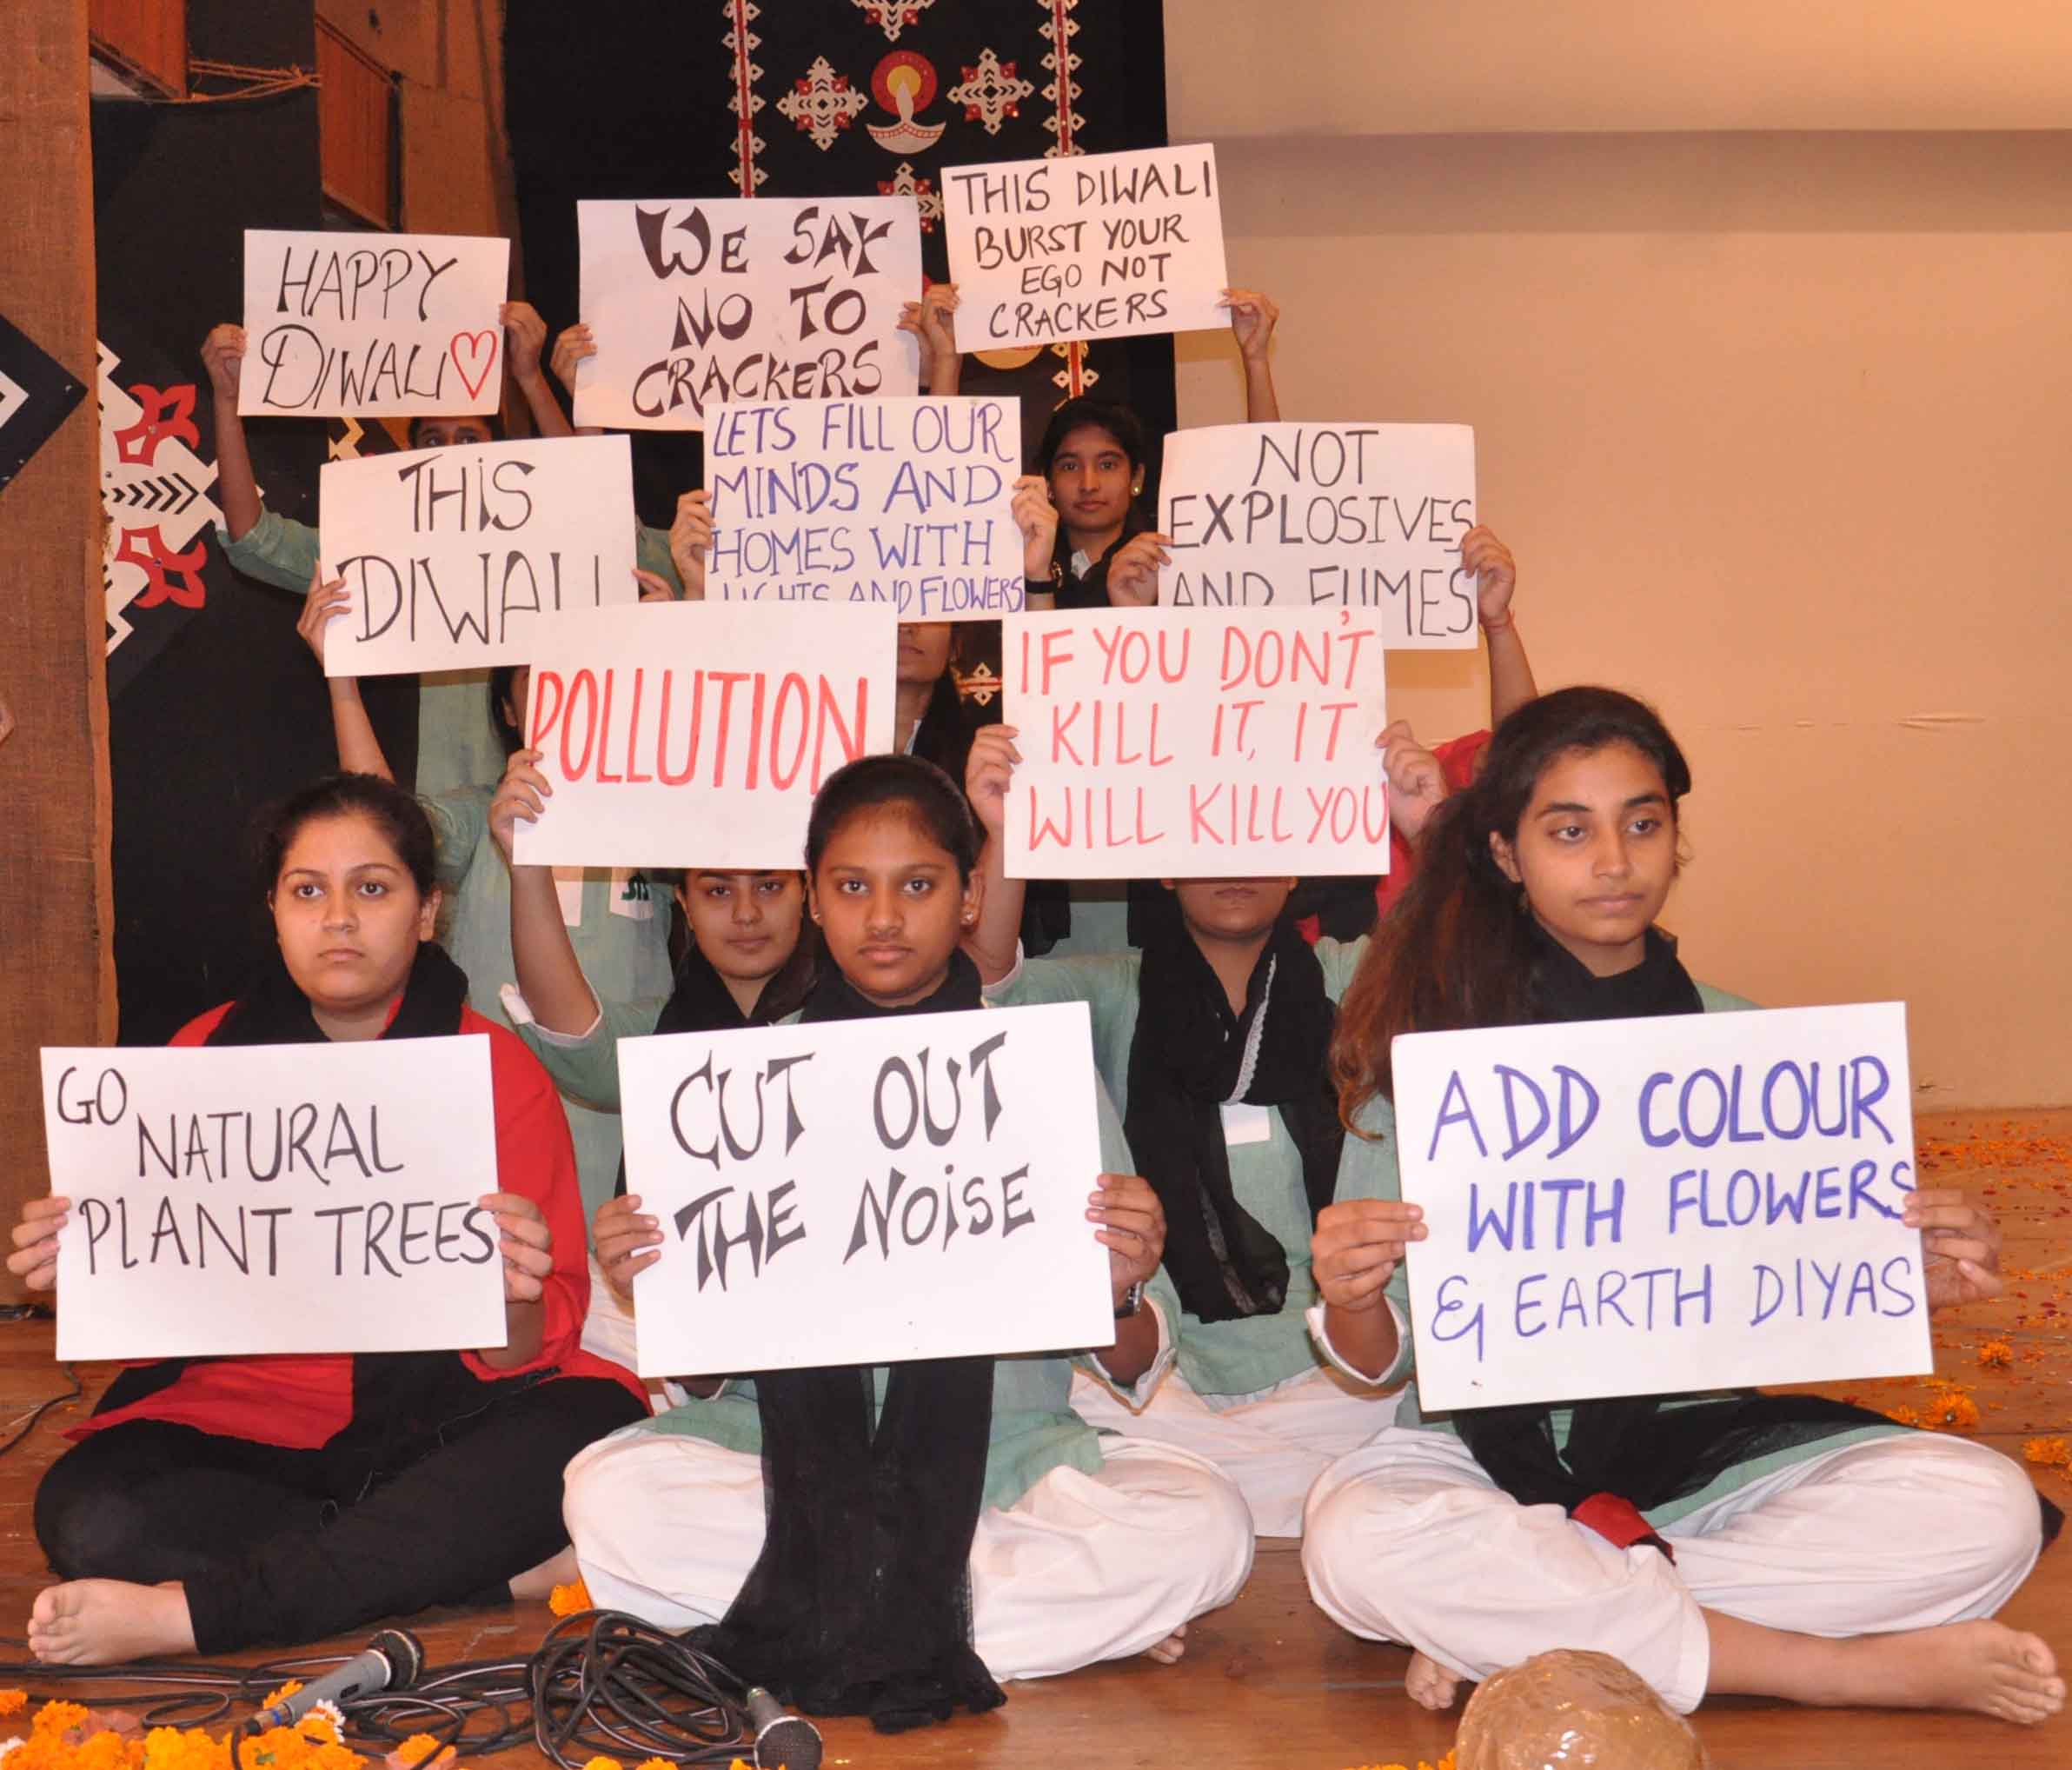 HAPPY
DIWALI
WE SAY
NO TO
CRACKERS
THIS DIWALI
BURST YOUR
EGO NOT
CRACKERS
THIS
DIWALI
LETS FILL OUR
MINDS AND
HOMES WITH
LIGHTS AND FLOWERS
NOT
EXPLOSIVES
AND FUMES
POLLUTION
IF YOU DON'T
KILL IT, IT
WILL KILL YOU
GO
NATURAL
PLANT TREES
CUT OUT
THE NOISE
ADD COLOUR
WITH FLOWERS
& EARTH DIYAS